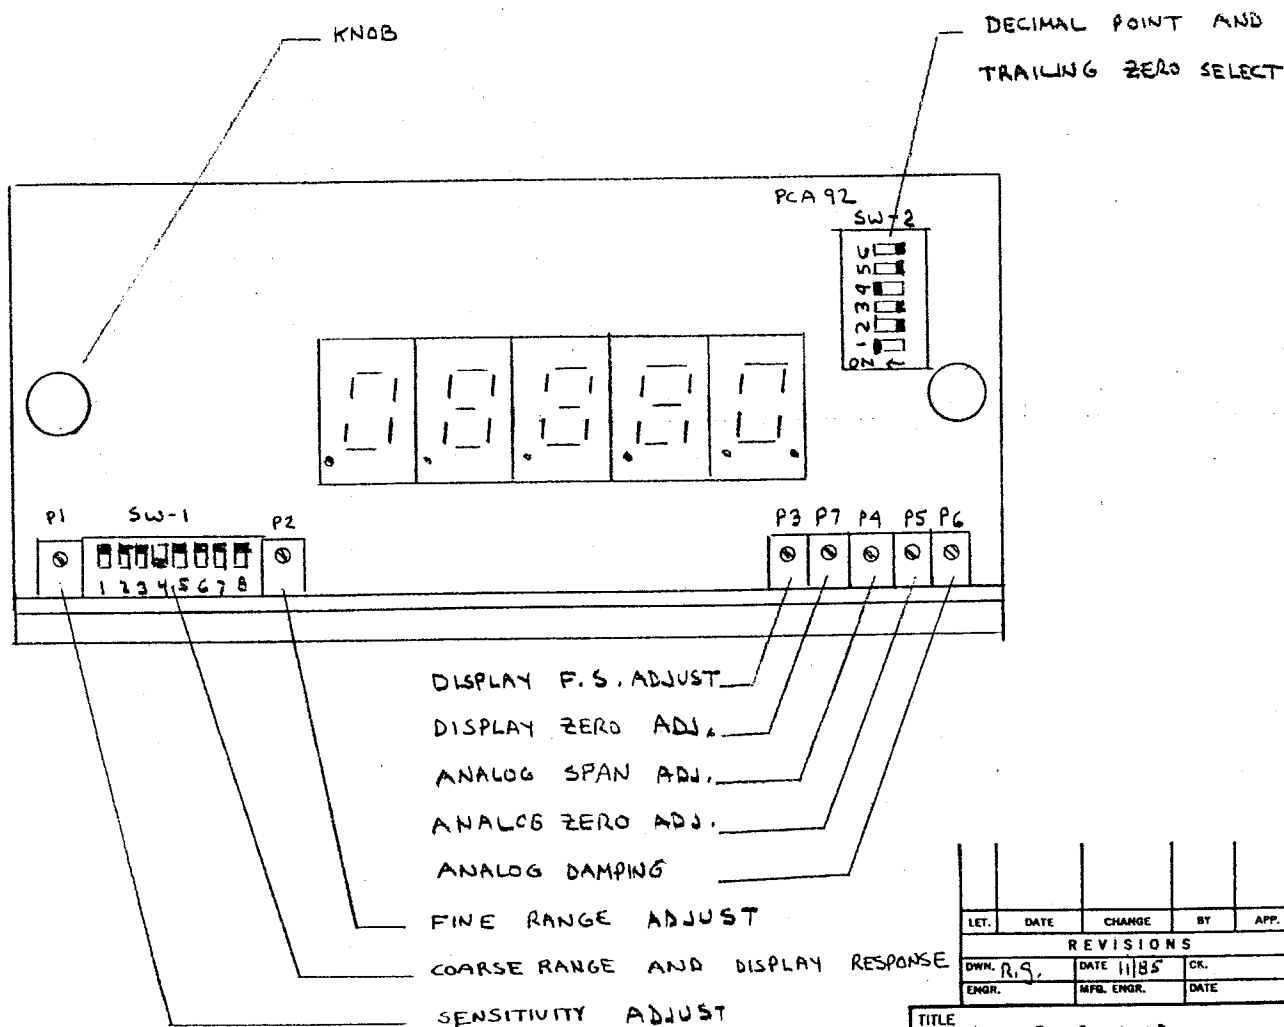 KNOB
DECIMAL POINT AND
TRAILING ZERO SELECT
PCA 92
SW-2
6
5
4
3
2
1
ON
P1
SW-1
P2
P3 P7 P4 P5 P6
1 2 3 4 5 6 7 8
DISPLAY F.S. ADJUST
DISPLAY ZERO ADJ.
ANALOG SPAN ADJ.
ANALOG ZERO ADJ.
ANALOG DAMPING
FINE RANGE ADJUST
COARSE RANGE AND DISPLAY RESPONSE
SENSITIVITY ADJUST
LET. DATE CHANGE BY APP.
REVISIONS
DWN. R.G. DATE 11/85 CK.
ENGR. MFG. ENGR. DATE
TITLE